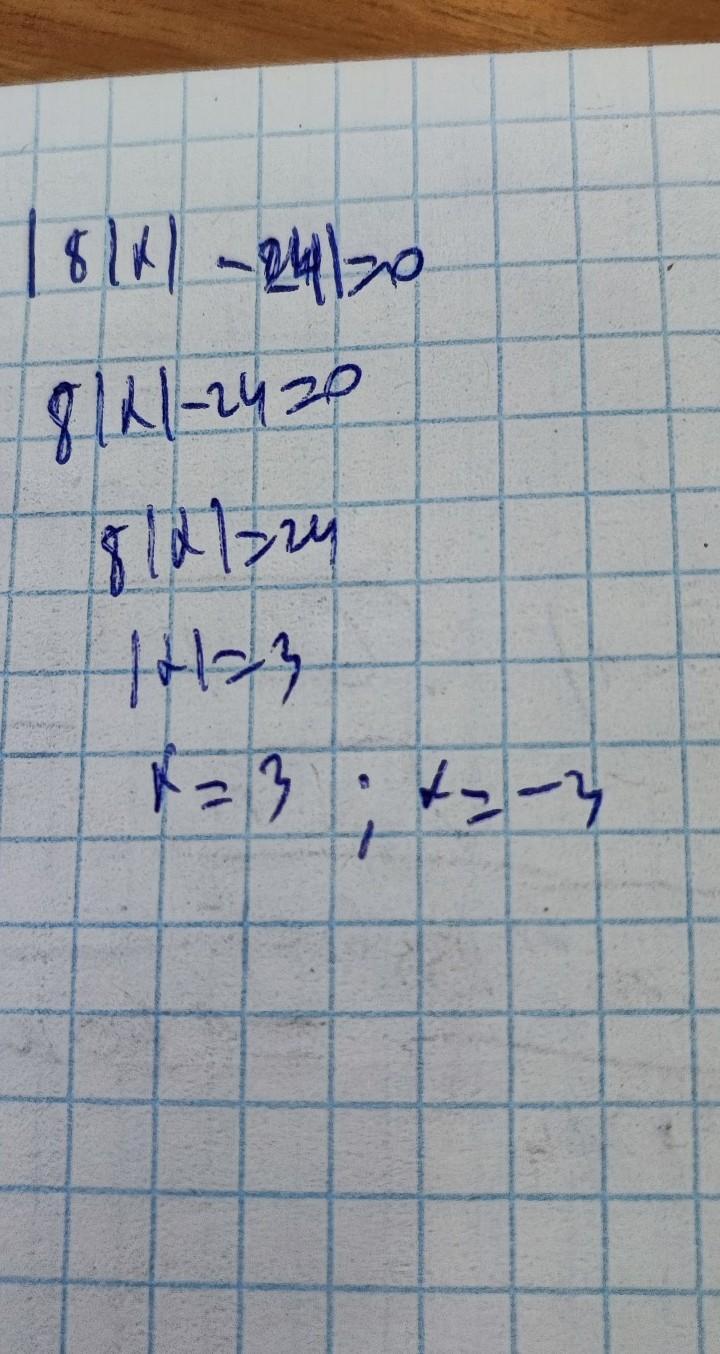 |8|x| -24|=0
8|x|-24=0
8|x|=24
|x|=3
x=3 ; x=-3